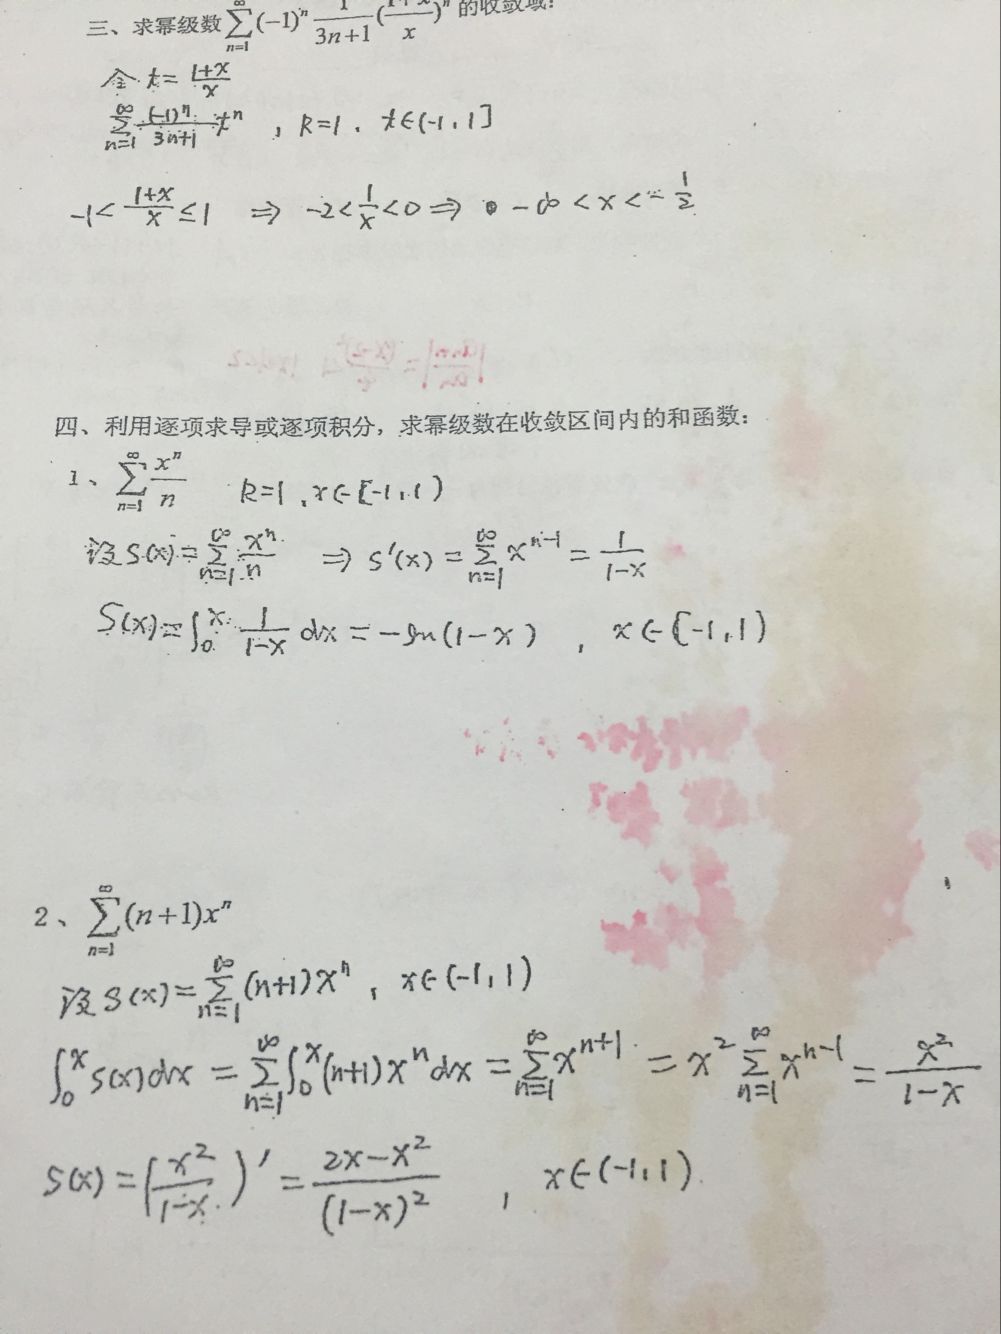 三、求幂级数 $\sum_{n=1}^{\infty}(-1)^n\frac{1}{3n+1}(\frac{1+x}{x})^n$ 的收敛域:
令 $t=\frac{1+x}{x}$
$\sum_{n=1}^{\infty}\frac{(-1)^n}{3n+1}t^n$ , R=1 , $t\in(-1,1]$
$-1<\frac{1+x}{x}\leq1$ ⇒ $-2<\frac{1}{x}<0$ ⇒ $-\infty<x<-\frac{1}{2}$
四、利用逐项求导或逐项积分，求幂级数在收敛区间内的和函数：
1、$\sum_{n=1}^{\infty}\frac{x^n}{n}$ R=1 , $x\in[-1,1)$
设 $S(x)=\sum_{n=1}^{\infty}\frac{x^n}{n}$ ⇒ $S'(x)=\sum_{n=1}^{\infty}x^{n-1}=\frac{1}{1-x}$
$S(x)=\int_0^x\frac{1}{1-x}dx=-\ln(1-x)$ , $x\in[-1,1)$
2、$\sum_{n=1}^{\infty}(n+1)x^n$
设 $S(x)=\sum_{n=1}^{\infty}(n+1)x^n$ , $x\in(-1,1)$
$\int_0^x S(x)dx=\sum_{n=1}^{\infty}\int_0^x(n+1)x^n dx=\sum_{n=1}^{\infty}x^{n+1}=x^2\sum_{n=1}^{\infty}x^{n-1}=\frac{x^2}{1-x}$
$S(x)=(\frac{x^2}{1-x})'=\frac{2x-x^2}{(1-x)^2}$ , $x\in(-1,1)$